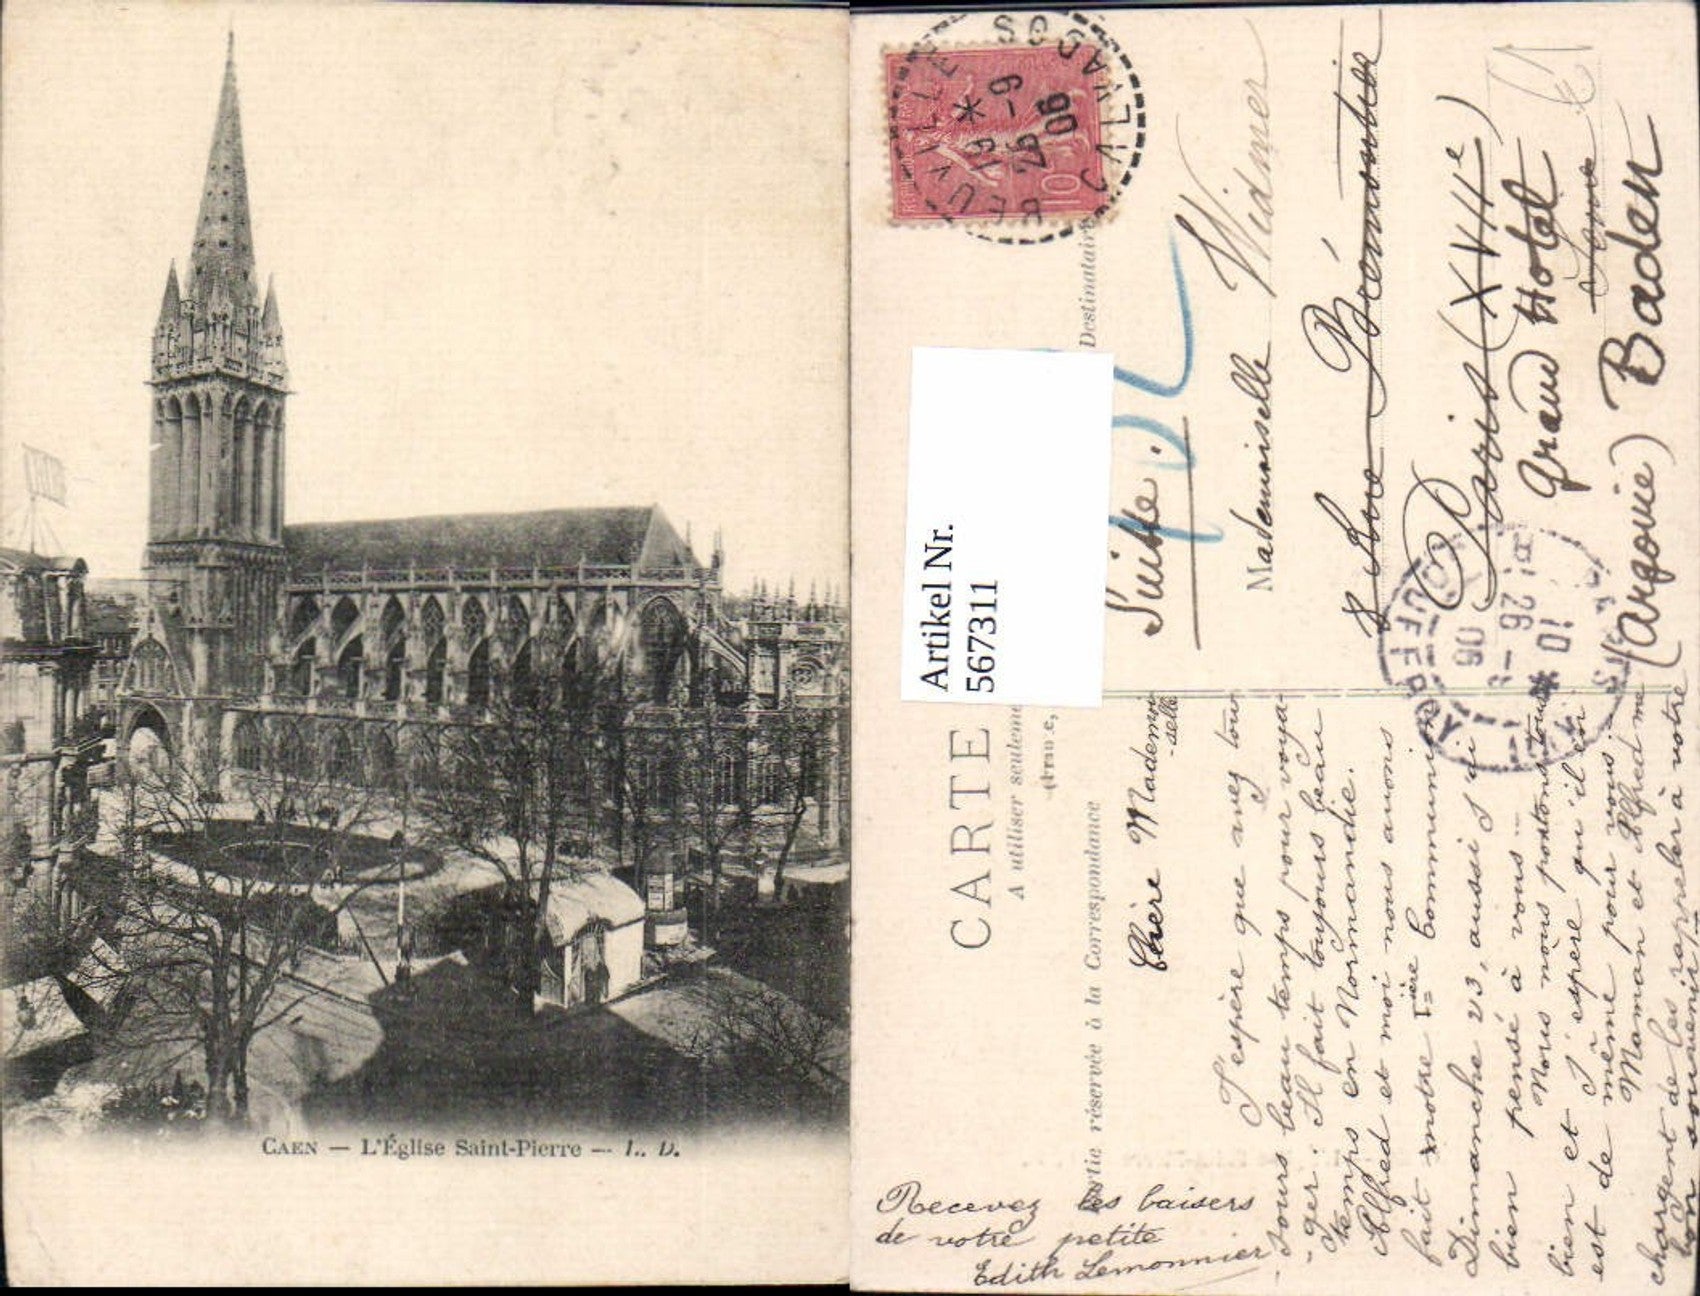 CAEN — L'Église Saint-Pierre — L. D.
Artikel Nr.
567311
CARTE
A utiliser seuleme
Partie réservée à la Correspondance
Destinataire
10
BEUVILLE
CALVADOS
19 *
25 -6
06
Suisse.
Mademoiselle Widmer
8 Rue Brémontier
Paris (XVIIe)
Grand Hotel
Baden
(Argovie)
PARIS
10 *
26 -6
06
JOUFFROY
Chère Mademoi-
selle
J'espère que avez tou-
jours beau temps pour voya-
-ger. Il fait toujours beau
temps en Normandie.
Alfred et moi nous avons
fait notre 1ère Communion
Dimanche 23, aussi j'ai
bien pensé à vous —
Nous nous portons tous
bien et j'espère qu'il en
est de même pour vous —
Maman et Alfred me
chargent de les rappeler à votre
bon souvenir
Recevez les baisers
de votre petite
Edith Lemonnier